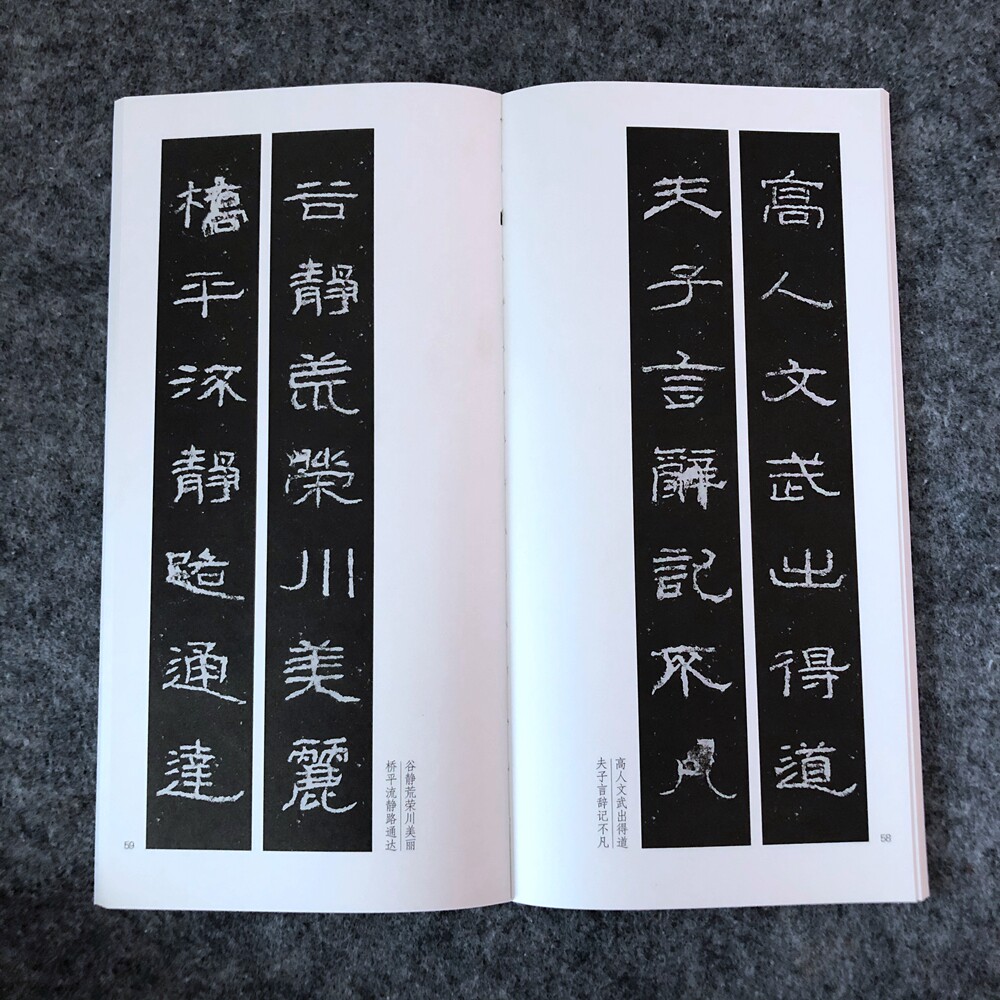 高人文武出得道
夫子言辭記不凡
高人文武出得道
夫子言辞记不凡
58
谷靜荒榮川美麗
橋平流靜路通達
谷静荒荣川美丽
桥平流静路通达
59